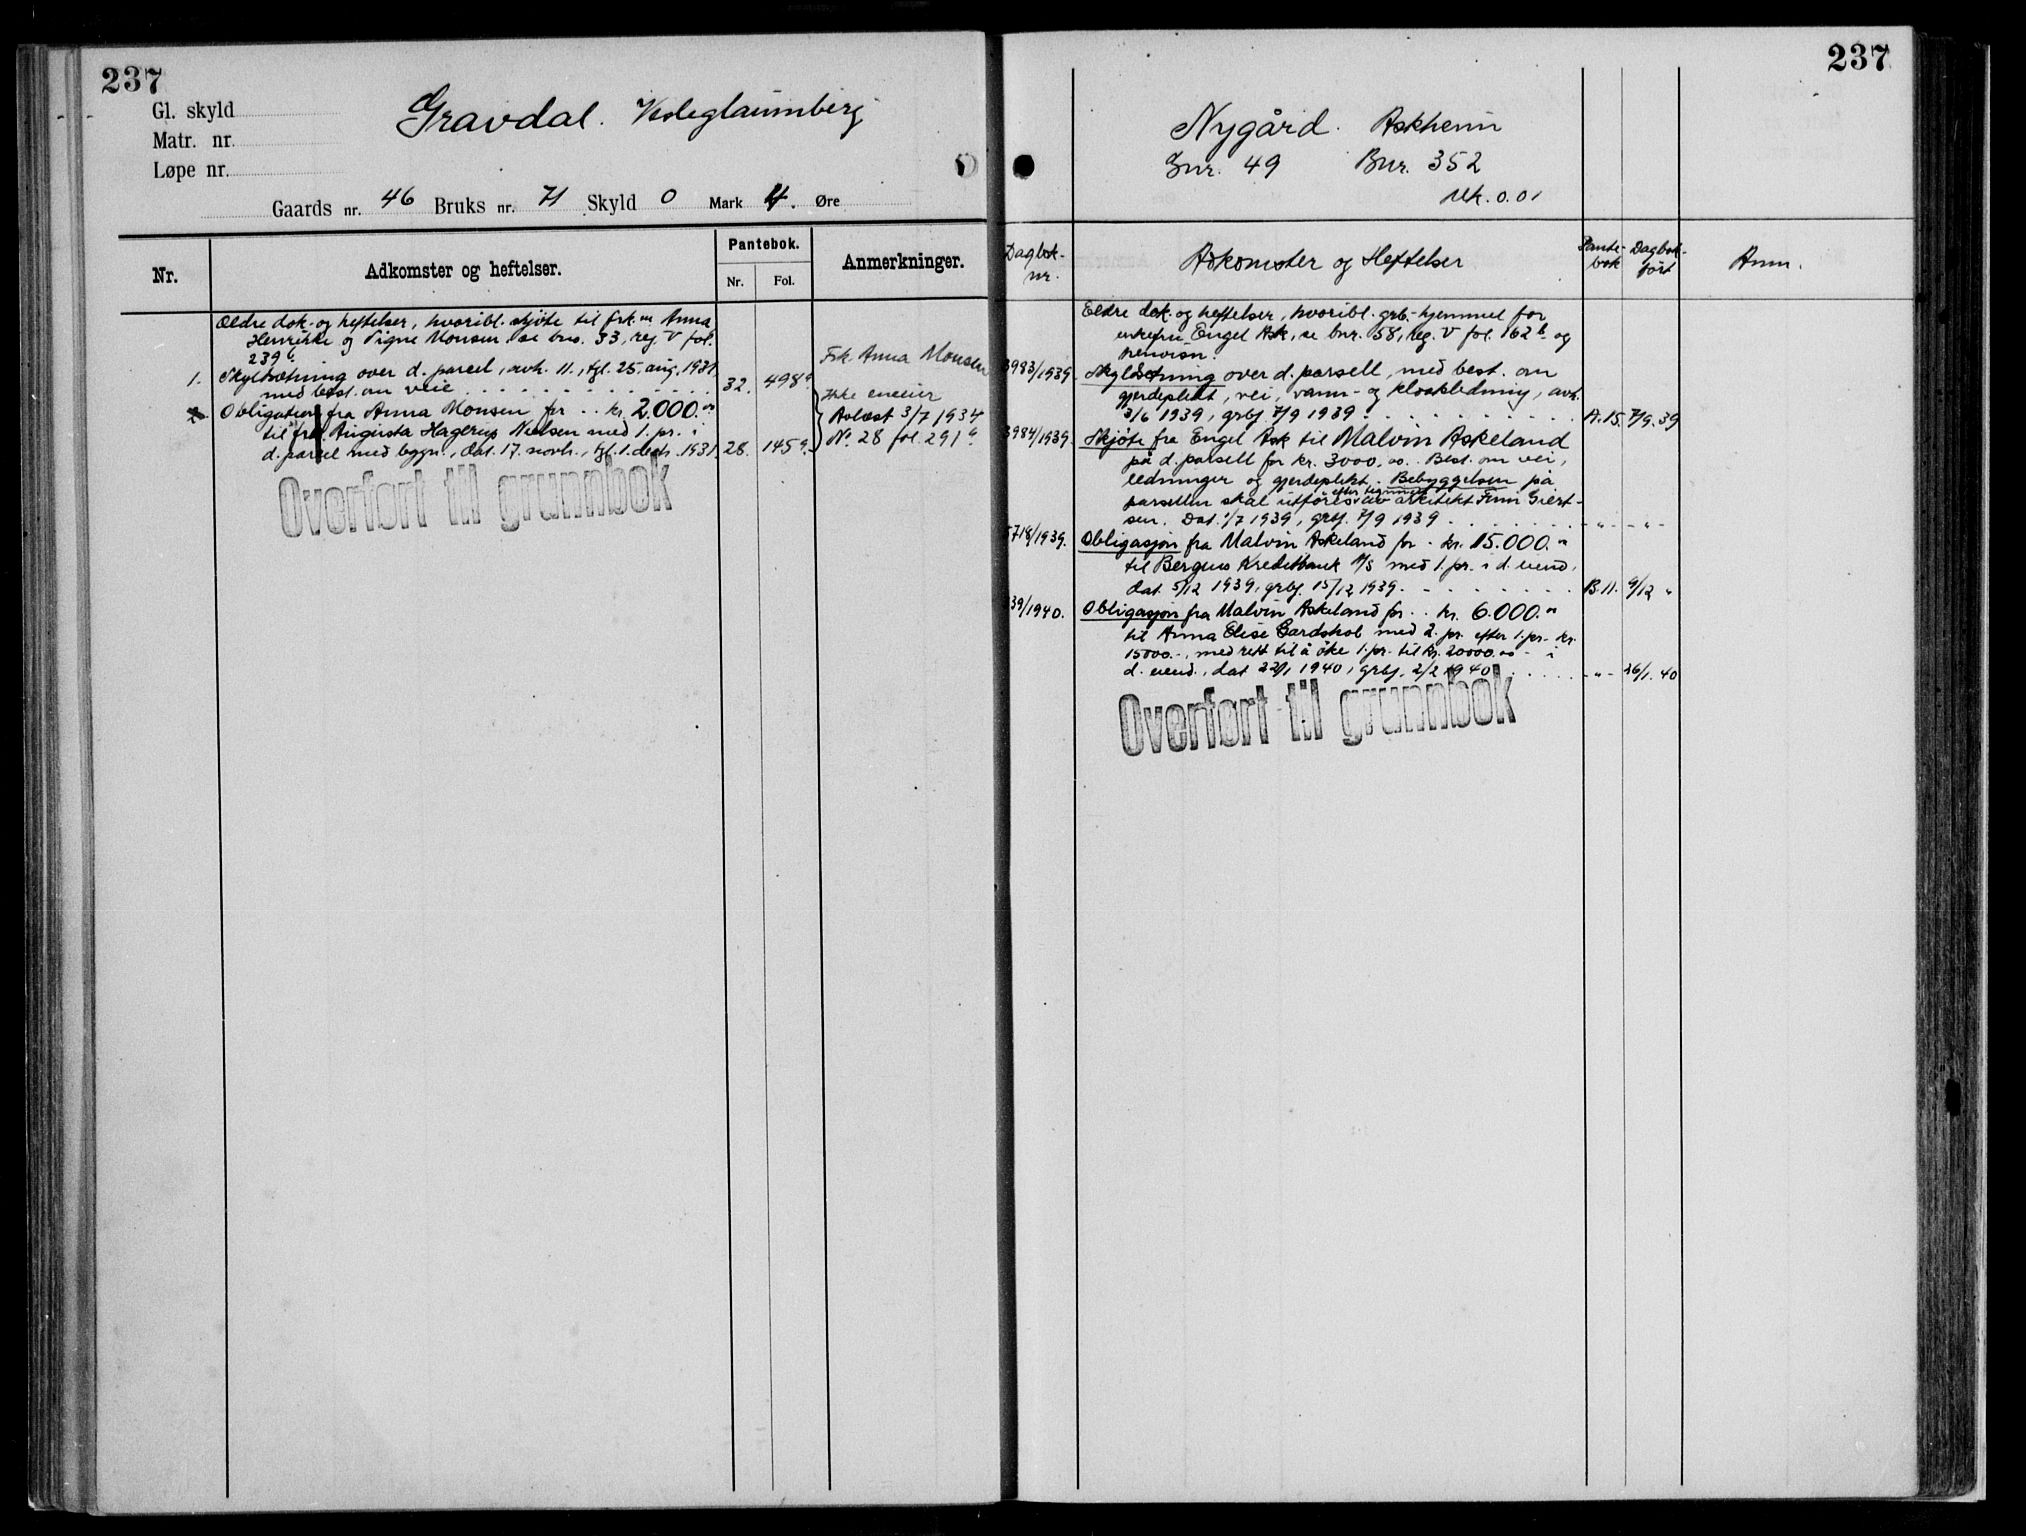 237
Gl. skyld
Matr. nr.
Løpe nr.
Gravdal. Vesleglaumberg
Gaards nr. 46 Bruks nr. 71 Skyld 0 Mark 4. Øre
Nr.
Adkomster og heftelser.
Pantebok.
Nr. Fol.
Anmerkninger.
Ældre dok. og heftelser, hvoribl. skjøte til frk.nr Anna
Henrikke og Signe Monsen se bnr. 33, reg. V fol.
239a.
1. Skyldsætning over d. parcel, avh. 11., tgl. 25. aug. 1931
med best. om veie . . . . . . . . . 32. 498a
Obligation fra Anna Monsen for . . kr. 2.000.00
til fru Augusta Hagerup Nielsen med 1. pr. i
d. parcel med bygn., dat. 17. novb., tgl. 1. decb. 1931. 28. 145a.
Frk. Anna Monsen
ikke eneeier
Avlæst 3/7 1934
No. 28 fol. 291a
Overført til grunnbok
237
Nygård. Askheim
Gnr. 49 Bnr. 352
Mk. 0.01
Dagbok-
nr.
Adkomster og Heftelser
Pante-
bok
Dagbok-
ført
Anm.
Eldre dok. og heftelser, hvoribl. grb.-hjemmel for
enkefru Engel Ask, se bnr. 58, reg. V fol. 162b og
henvisn.
3983/1939 Skyldsetning over d. parsell, med best. om
gjerdeplikt, vei, vann- og kloakledning, avh.
3/6 1939, grbf. 7/9 1939 . . . . . . . . . A.15. 7/9. 39
3984/1939. Skjøte fra Engel Ask til Malvin Askeland
på d. parsell for kr. 3000,00. Best. om vei,
ledninger og gjerdeplikt. Bebyggelsen på
parsellen skal utføres efter tegninger av arkitekt Finn Giert-
sen. Dat. 1/7 1939, grbf. 7/9 1939 . . . . . . - " - - " -
5718/1939. Obligasjon fra Malvin Askeland for - kr. 15.000.00
til Bergens Kreditbank A/S med 1. pr. i d. eiend.
dat. 5/12 1939, grbf. 15/12 1939 . . . . . . . B.11. 9/12 "
39/1940. Obligasjon fra Malvin Askeland for . . kr. 6.000.00
til Anna Elise Gardskol med 2. pr. efter 1. pr. kr.
15000.-, med rett til å øke 1. pr. til kr. 20000.00 - i
d. eiend., dat 22/1 1940, grbf. 2/2 1940 . . . . . - " - 26/1. 40
Overført til grunnbok